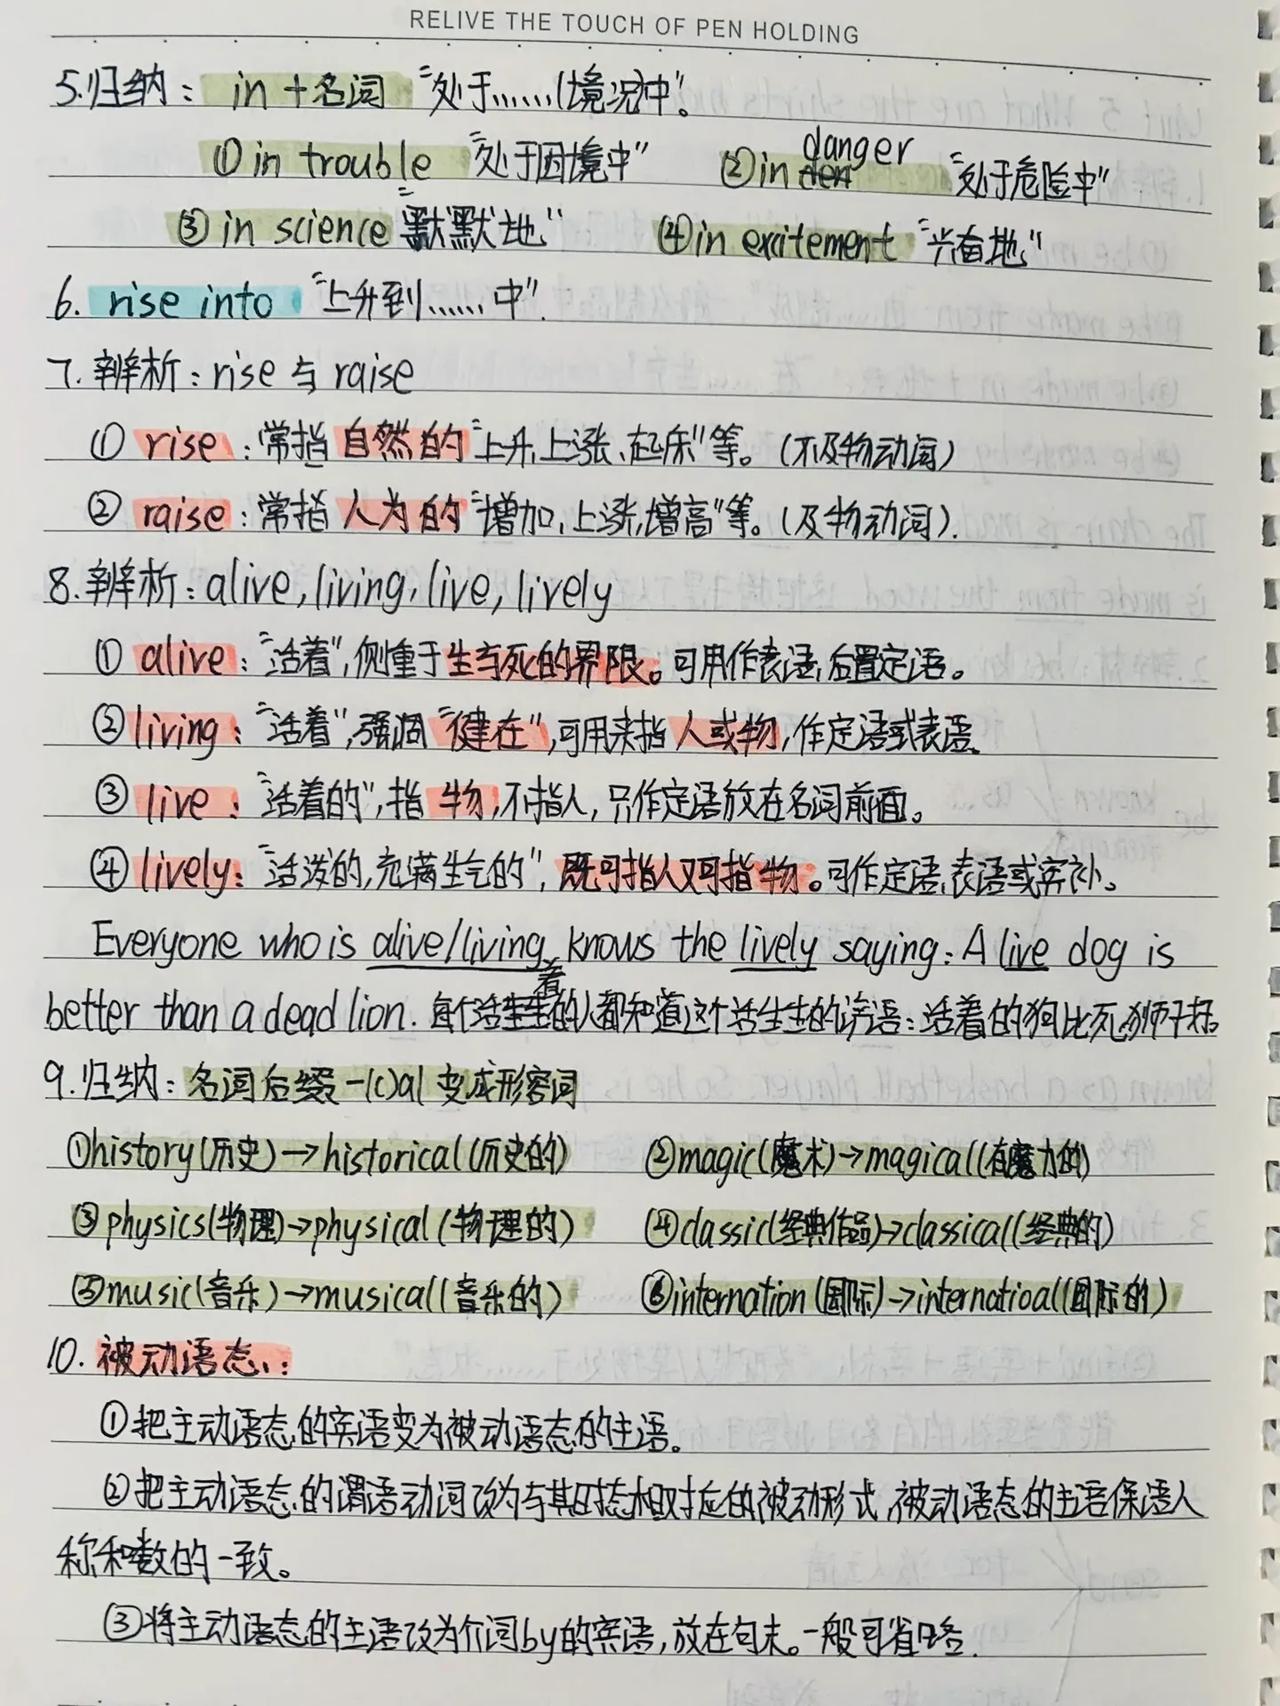 RELIVE THE TOUCH OF PEN HOLDING
5.归纳：in＋名词 “处于……(境况)中”。
①in trouble “处于困境中” ②in danger “处于危险中”
③in science “默默地” ④in excitement “兴奋地”
6. rise into “上升到……中”.
7. 辨析：rise 与 raise
① rise：常指自然的“上升、上涨、起床”等。（不及物动词）
② raise：常指人为的“增加、上涨、增高”等。（及物动词）.
8.辨析：alive, living, live, lively
① alive：“活着”,侧重于生与死的界限。可用作表语,后置定语。
②living：“活着”,强调“健在”,可用来指人或物,作定语或表语.
③ live：“活着的”,指物,不指人,只作定语放在名词前面。
④ lively：“活泼的,充满生气的”,既可指人又可指物。可作定语、表语或宾补。
Everyone who is alive/living knows the lively saying: A live dog is
better than a dead lion. 每个活着的人都知道这个活生生的谚语：活着的狗比死狮子好。
9.归纳：名词后缀-(c)al 变成形容词
①history(历史)→historical(历史的) ②magic(魔术)→magical(有魔力的)
③physics(物理)→physical(物理的) ④classic(经典作品)→classical(经典的)
⑤music(音乐)→musical(音乐的) ⑥internation(国际)→internatioal(国际的)
10. 被动语态：
①把主动语态的宾语变为被动语态的主语。
②把主动语态的谓语动词改为与其时态相对应的被动形式,被动语态的主谓保语人
称和数的一致。
③将主动语态的主语改为介词by的宾语,放在句末。一般可省略.